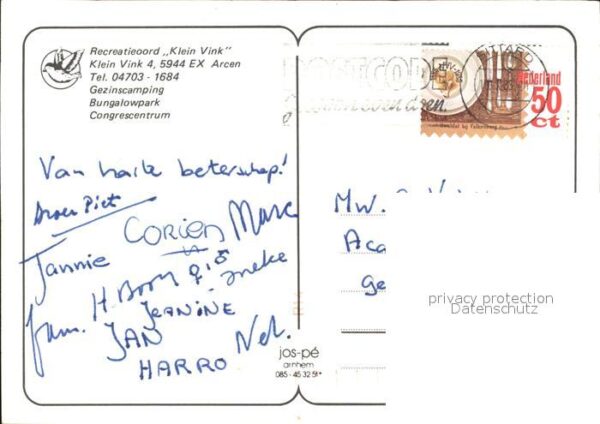 Recreatieoord „Klein Vink"
Klein Vink 4, 5944 EX Arcen
Tel. 04703 - 1684
Gezinscamping
Bungalowpark
Congrescentrum
POSTCODE
SITTARD
Nederland
50
ct
Van harte beterschap!
Broer Piet
CORIEN Marc
Jannie
Ineke
fam. H. Boom
JEANINE
JAN
Nel.
HARRO
Mw.
Aca
Ge
jos-pé
arnhem
085 - 45 32 51*
privacy protection
Datenschutz